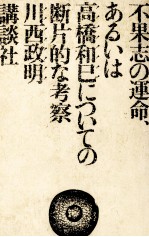 不果志の運命、
あるいは
高橋和巳についての
断片的な考察
川西政明
講談社